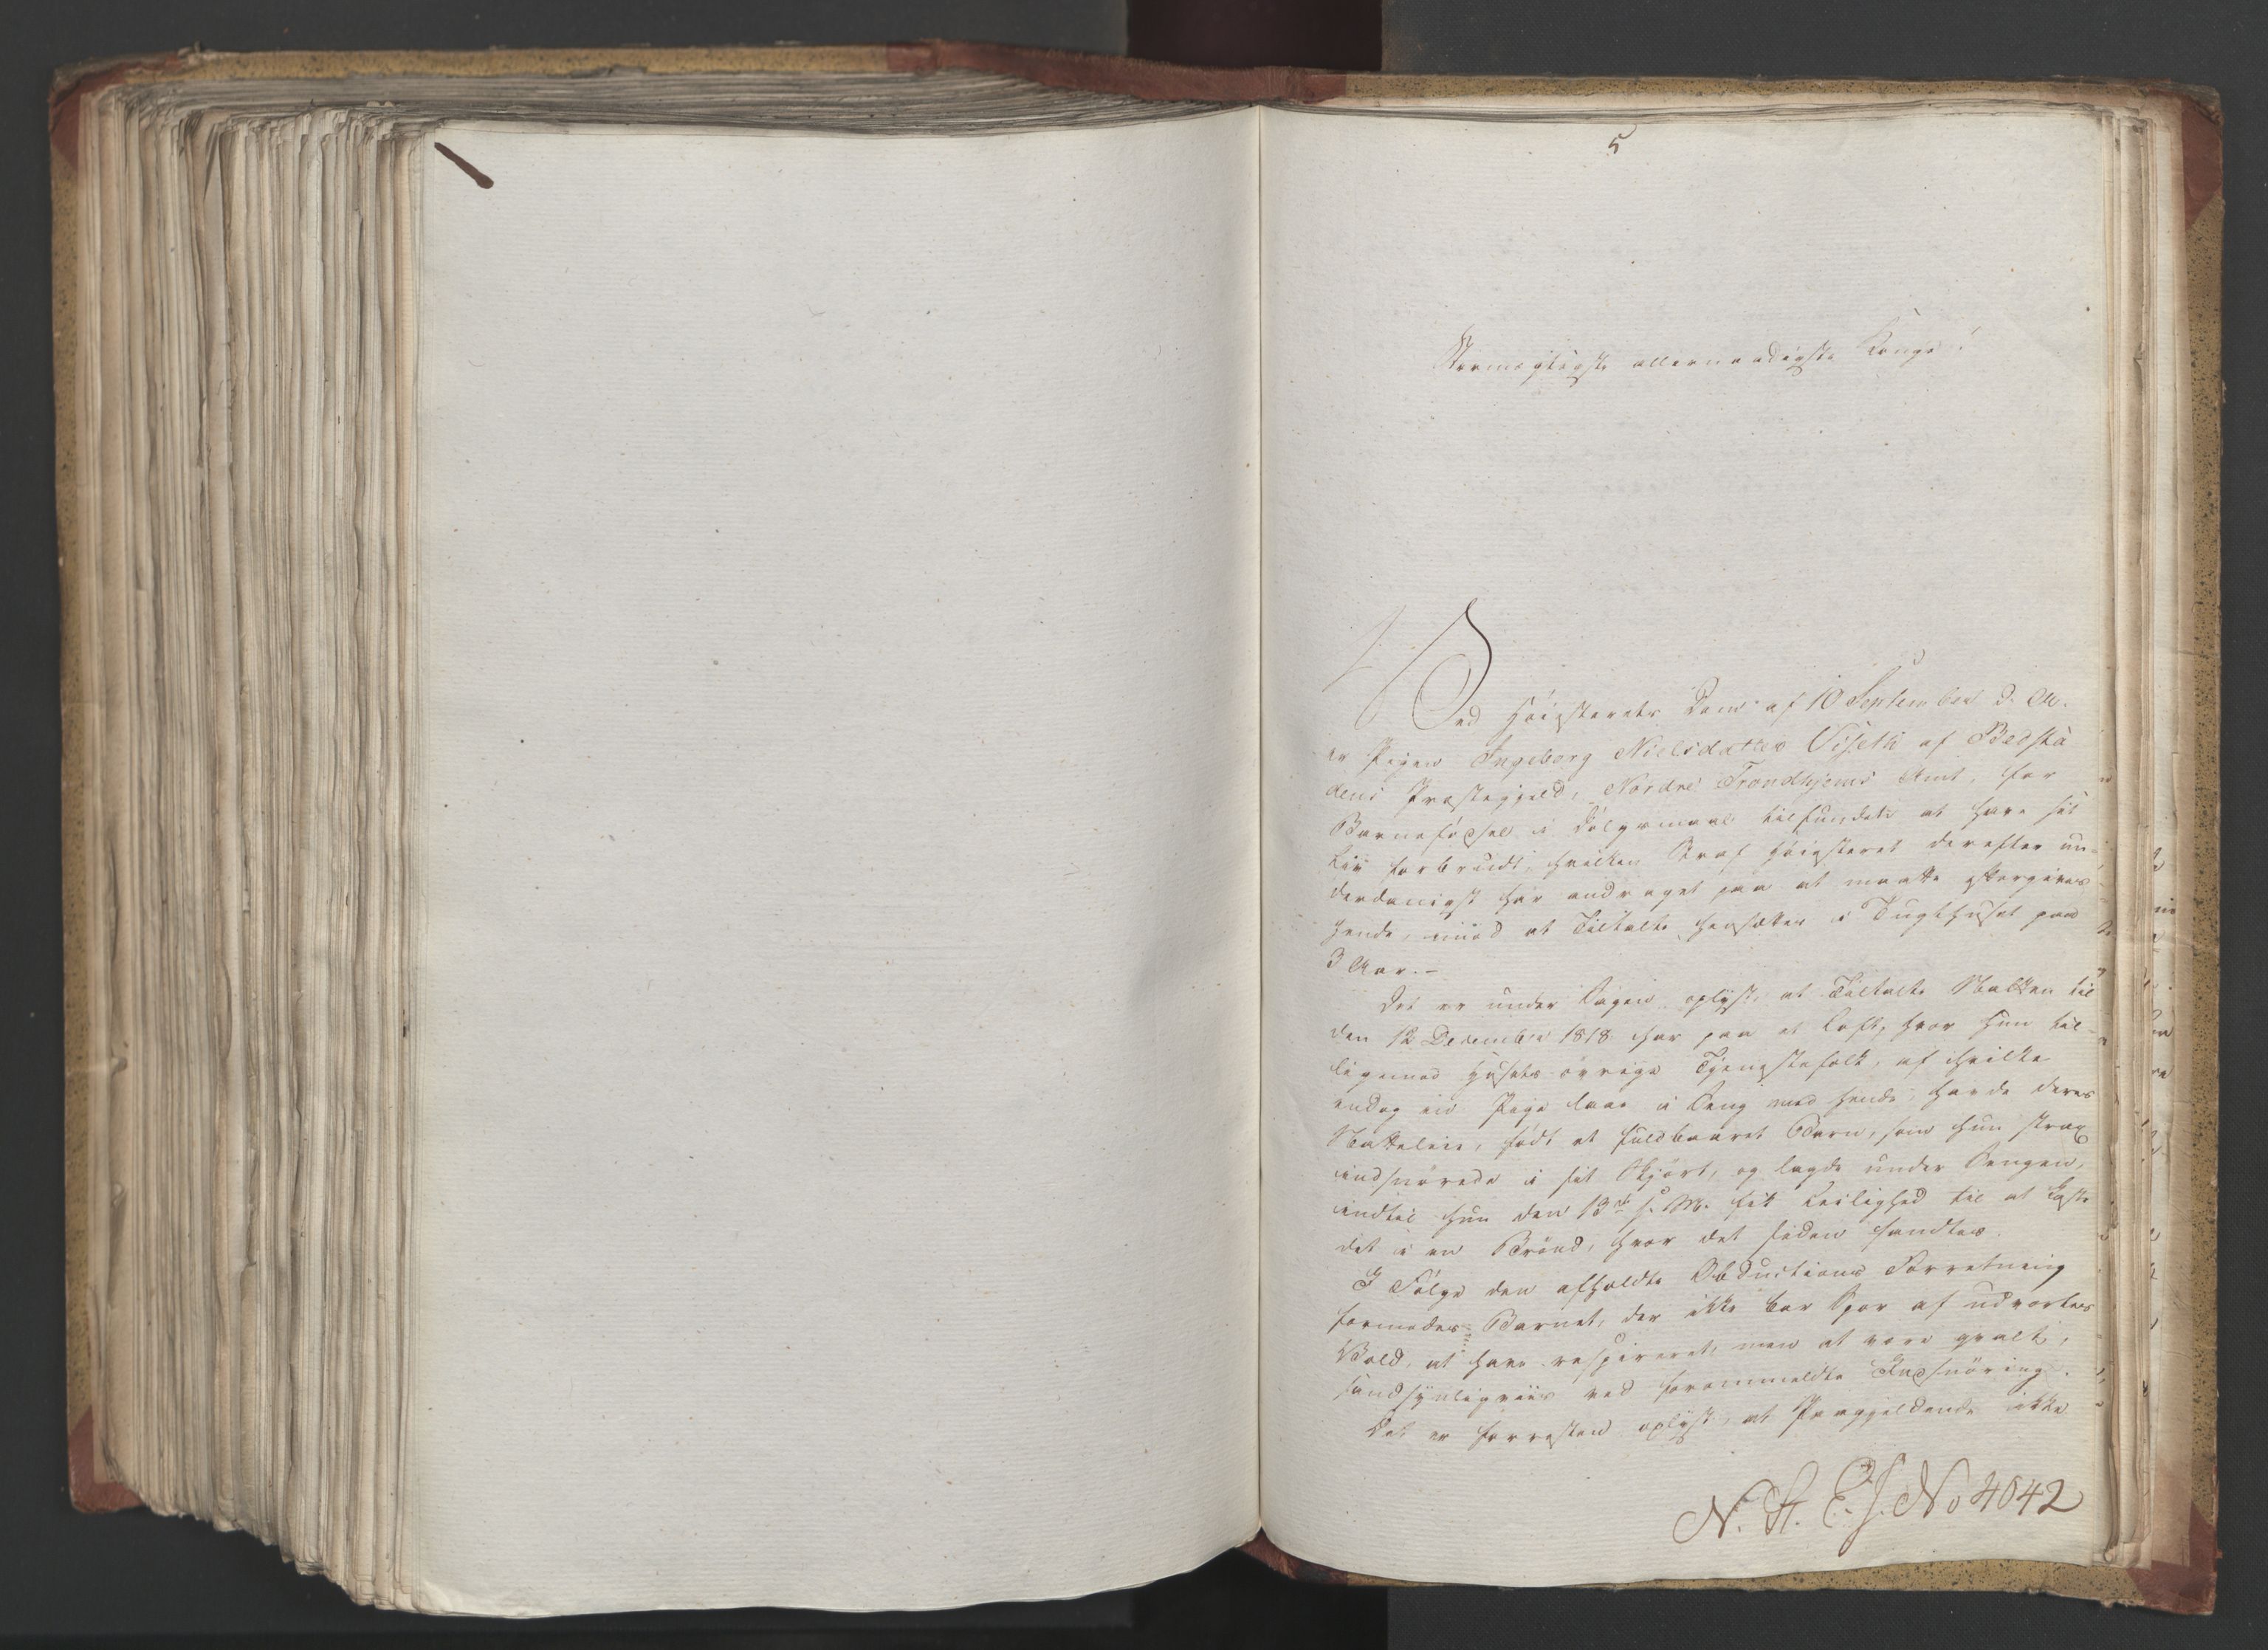 5
Stormægtigste allernaadigste Konge!
Ved Høiesterets Dom af 10 September d. A.
er Pigen Ingeborg Nielsdatter Viseth af Bedsta
dens Præstegjeld, Nordre Trondhjems Amt, for
Barnefødsel i Dølgsmaal tilfundet at have sit
Liv forbrudt, hvilken Straf Høiesteret derefter un-
derdanigst har andraget paa at maatte eftergives
hende, imod at Tiltalte hensættes i Tugthuset paa
3 Aar.-
Det er under Sagen oplyst, at Tiltalte Natten til
den 12 December 1818 har paa et Loft, hvor hun til-
ligemed Husets øvrige Tjenestefolk, af hvilke
endog en Pige laae i Seng med hende, havde deres
Natteleie, født et fuldbaaret Barn, som hun strax
indsnørede i sit Skjørt, og lagde under Sengen,
indtil hun den 13de s. M. fik Leilighed til at kaste
det i en Brønd, hvor det siden fandtes.
I Følge den afholdte Obductions Forretning
formodes Barnet, der ikke bar Spor af udvortes
Vold, at have respireret, men at være qvalt,
sandsynligviis ved forommeldte Indsnøring.
Det er forresten oplyst, at Paagjeldende ikke
N. St. E. J. No 4042